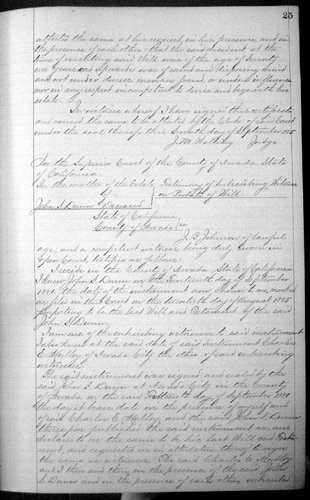 25
attested the same at his request, in his presence and in
the presence of each other; that the said decedent at the
time of executing said Will was of the age of Twenty
one years and upwards was of sound and disposing mind
and not under duress menace fraud or undue influence
nor in any respect incompetent to devise and bequeath his
estate
In witness whereof I have signed this certificate
and caused the same to be attested by the Clerk of said Court
under the seal thereof this Seventh day of September 1885
J.M. Walling Judge
In the Superior Court of the County of Nevada, State
of California
In the matter of the Estate Testimony of Subscribing Witness
of on Probate of Will
John S. Dunn Deceased
State of California
County of Nevada ss
J. B. Johnson of lawful
age, and a competent witness being duly sworn in
open Court, testifies as follows
I reside in the County of Nevada State of California
I knew John S. Dunn on the day of
1881 the date of the instrument now shown to me, marked
as filed in this Court on the day of August 1885
purporting to be the last Will and Testament of the said
John S. Dunn
I am one of the subscribing witnesses to said instrument
I also knew at the said date of said Instrument Charles
E. Mulloy of Nevada City the other of said subscribing
witnesses
The said instrument was signed and sealed by the
said John S. Dunn at Nevada City in the County
of Nevada on the said day of September 1881
the day it bears date in the presence of myself and
of said Charles E. Mulloy and the said John S. Dunn
thereupon published the said instrument as and
declared to us the same to be his last Will and Testa
ment and requested us in attestation thereof to sign
the same as witnesses. The said Charles E. Mulloy
and I then and there in the presence of the said John
S. Dunn and in the presence of each other subscribed